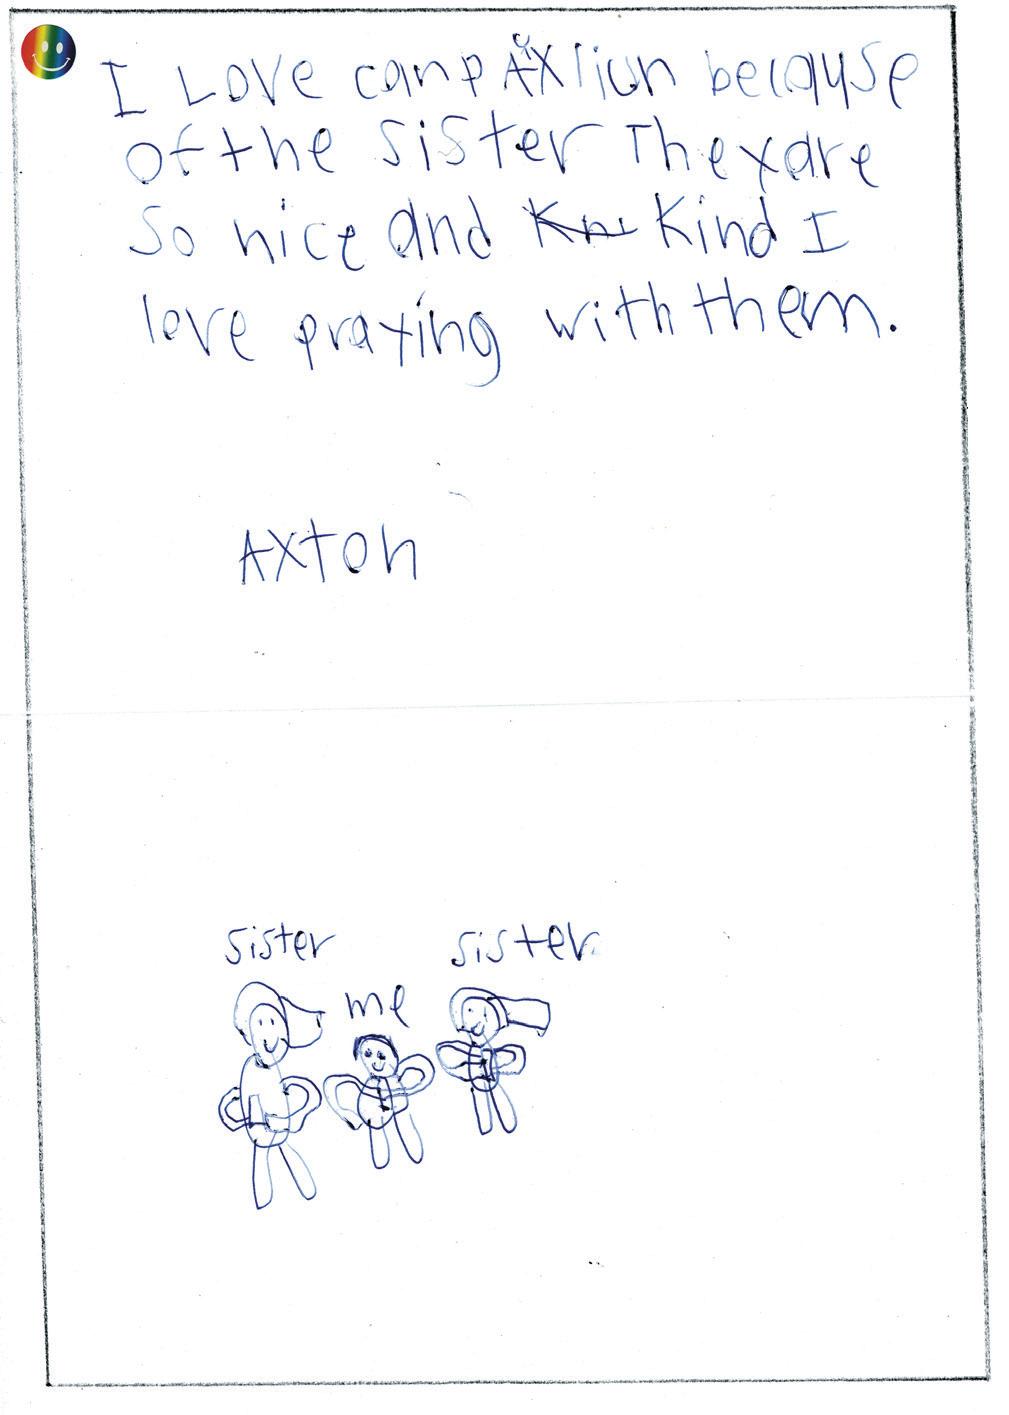 I Love canp AXliun because
of the sister They are
so nice and Kind I
love praying with them.
AXton
sister
sister
me